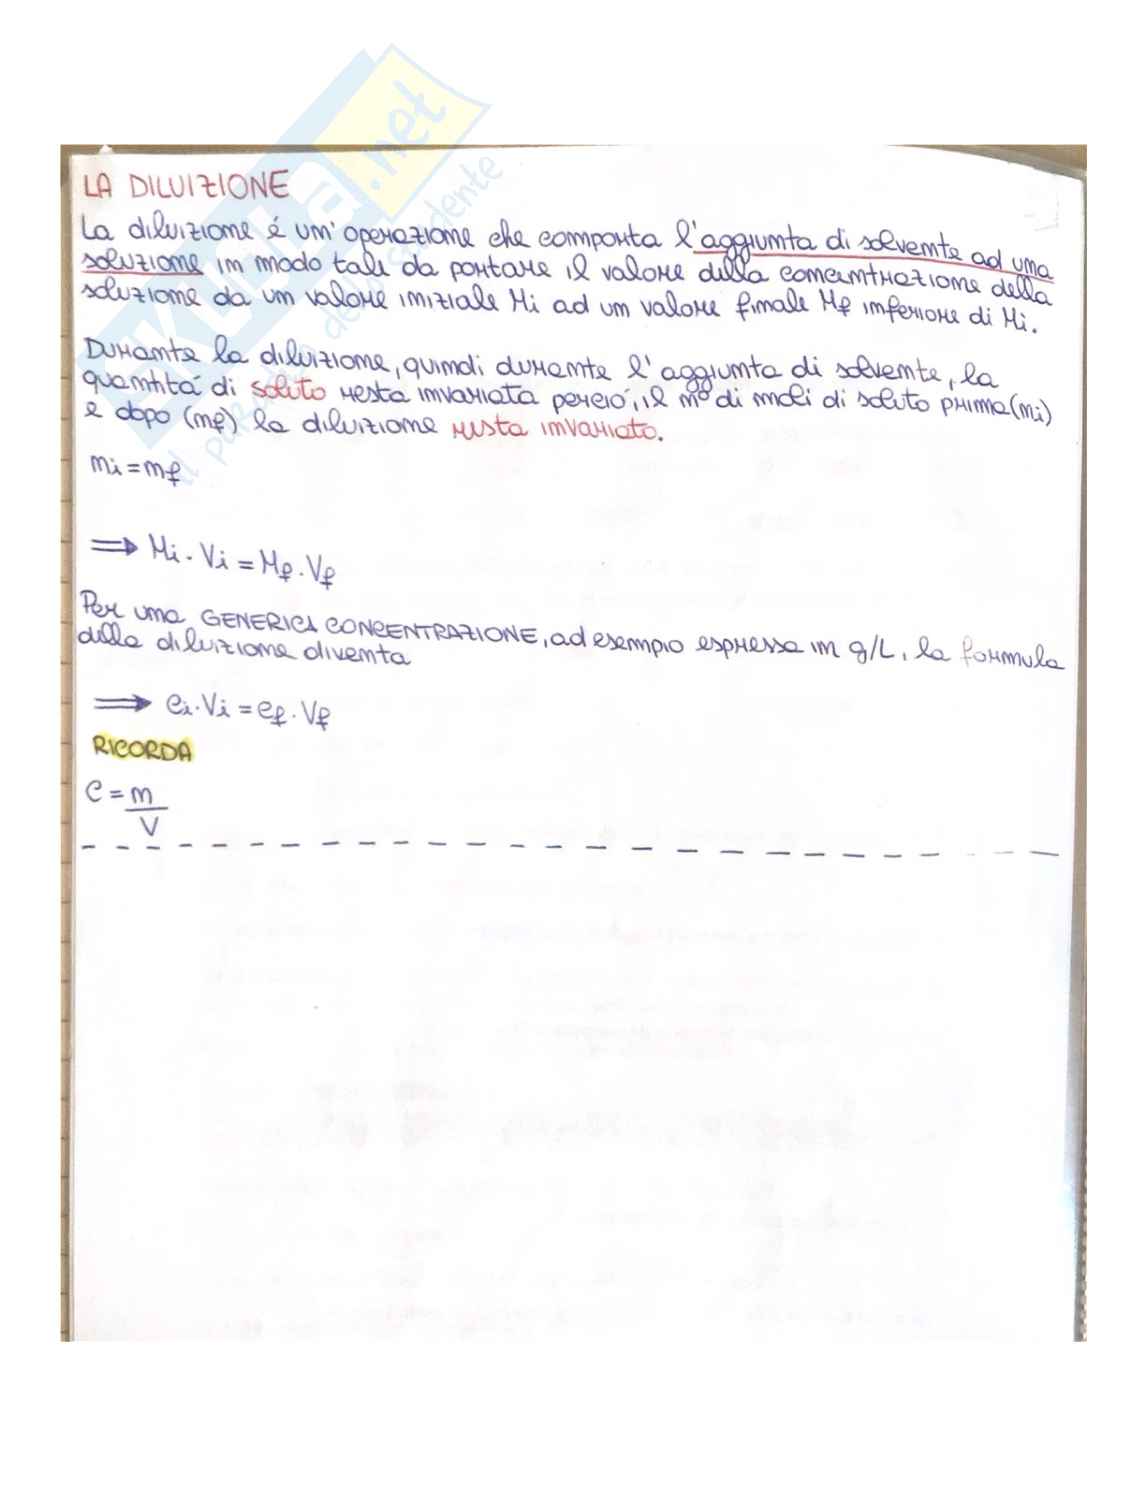 SKUOLA.net
il paradiso dello studente
LA DILUIZIONE
La diluizione é un'operazione che comporta l'aggiunta di solvente ad una
soluzione in modo tale da portare il valore della concentrazione della
soluzione da un valore iniziale Mi ad un valore finale Mf inferiore di Mi.
Durante la diluizione, quindi durante l'aggiunta di solvente, la
quantitá di soluto resta invariata perció, il n° di moli di soluto prima (ni)
e dopo (nf) la diluizione resta invariato.
ni = nf
⟹ Mi · Vi = Mf · Vf
Per una GENERICA CONCENTRAZIONE, ad esempio espressa in g/L, la formula
della diluizione diventa
⟹ Ci · Vi = Cf · Vf
RICORDA
C = m
V